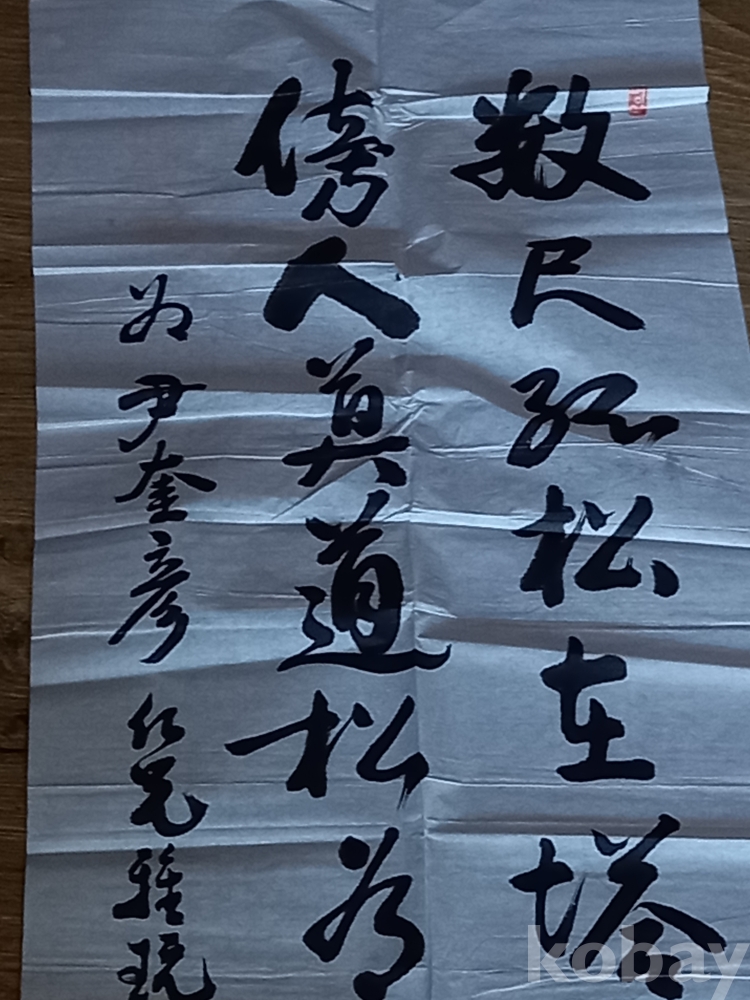 數尺孤松在塔
傍人莫道松為
為尹奎彥仁兄雅玩
kobay